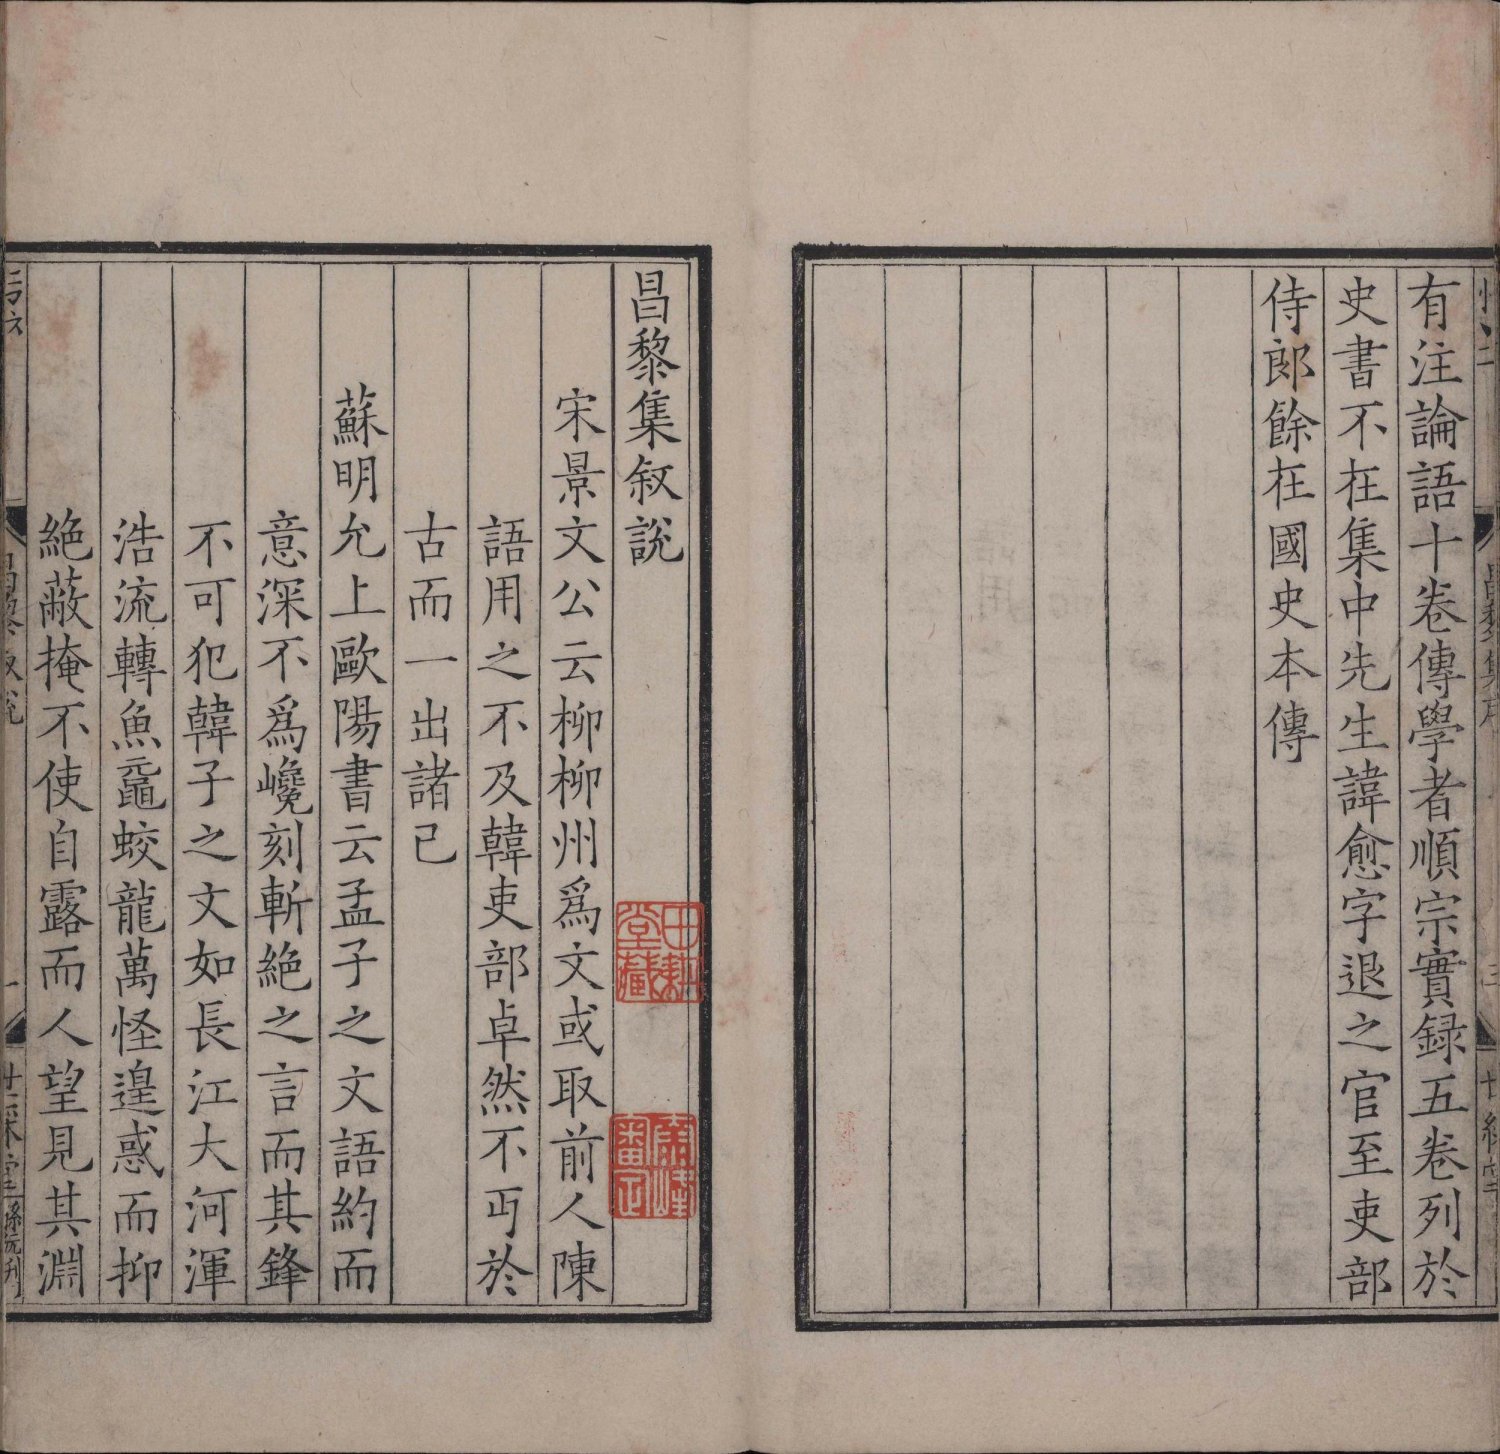 有注論語十卷傳學者順宗實録五卷列於
史書不在集中先生諱愈字退之官至吏部
侍郎餘在國史本傳
昌黎集叙說
宋景文公云柳柳州爲文或取前人陳
語用之不及韓吏部卓然不丐於
古而一出諸己
蘇明允上歐陽書云孟子之文語約而
意深不爲巉刻斬絶之言而其鋒
不可犯韓子之文如長江大河渾
浩流轉魚黿蛟龍萬怪遑惑而抑
絶蔽掩不使自露而人望見其淵
田耕堂藏